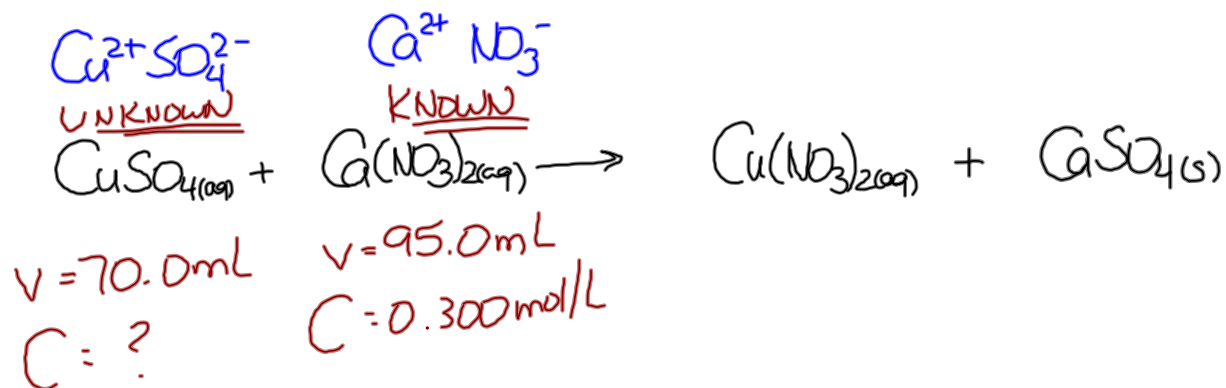 Cu²⁺SO₄²⁻ Ca²⁺ NO₃⁻
UNKNOWN KNOWN
CuSO₄(aq) + Ca(NO₃)₂(aq) → Cu(NO₃)₂(aq) + CaSO₄(s)
V = 70.0mL V = 95.0mL
C = ? C = 0.300mol/L